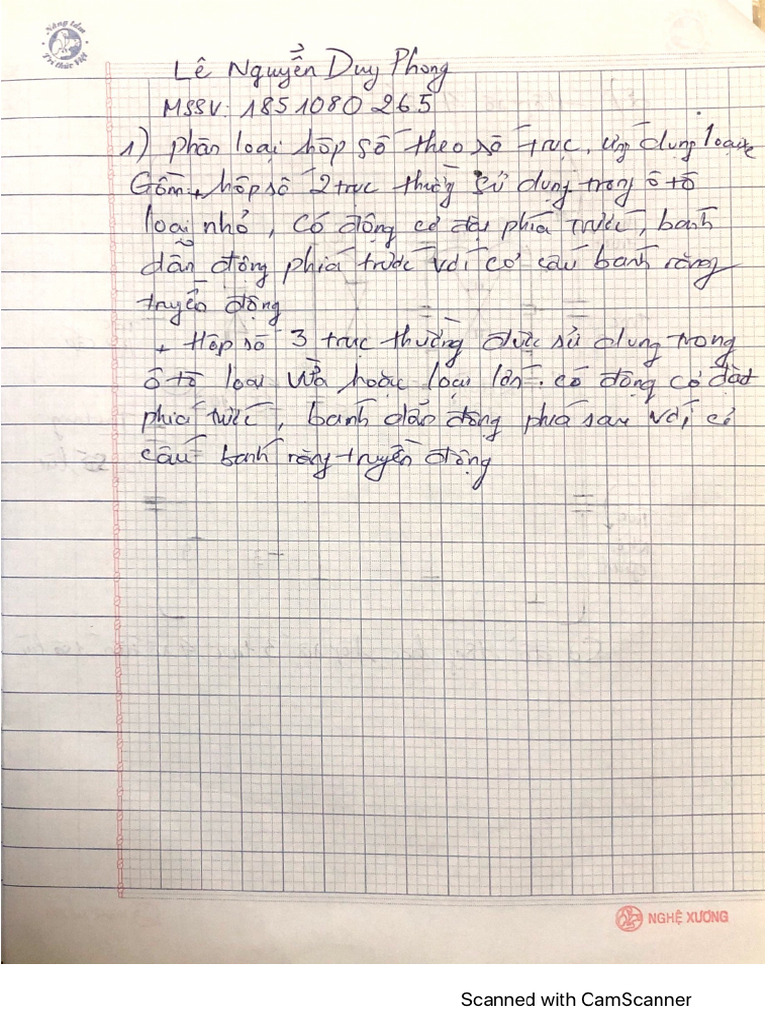 Nâng tầm
Tri thức Việt
Lê Nguyễn Duy Phong
MSSV: 1851080265
1) phân loại hộp số theo số trục, ứng dụng loại xe
Gồm + hộp số 2 trục thường sử dụng trong ô tô
loại nhỏ, có động cơ đặt phía trước, bánh
dẫn động phía trước với cơ cấu bánh răng
truyền động
+ Hộp số 3 trục thường được sử dụng trong
ô tô loại vừa hoặc loại lớn. có động cơ đặt
phía trước, bánh dẫn động phía sau với cơ
cấu bánh răng truyền động
NGHỆ XƯƠNG
Scanned with CamScanner